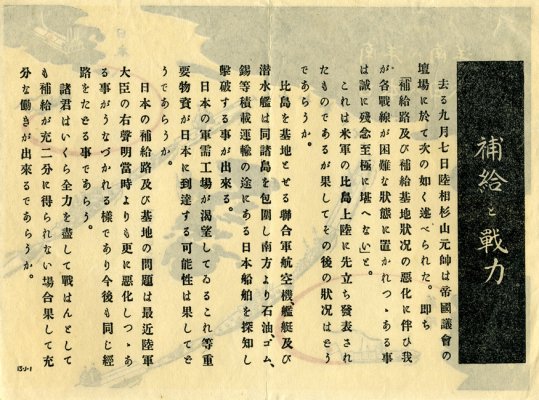 補給と戰力
去る九月七日陸相杉山元帥は帝國議會の
壇場に於て次の如く述べられた。卽ち
「補給路及び補給基地狀況の惡化に伴ひ我
が各戰線が困難な狀態に置かれつゝある事
は誠に殘念至極に堪へない」と。
これは米軍の比島上陸に先立ち發表され
たものであるが果してその後の狀況はどう
であらうか。
比島を基地とせる聯合軍航空機、艦艇及び
潜水艦は同諸島を包圍し南方より石油、ゴム、
錫等積載運輸の途にある日本船舶を探知し
擊破する事が出來る。
日本の軍需工場が渴望してゐるこれ等重
要物資が日本に到達する可能性は果してど
うであらうか。
日本の補給路及び基地の問題は最近陸軍
大臣の右聲明當時よりも更に惡化しつゝあ
る事がうなづかれる樣であり今後も同じ經
路をたどる事であらう。
諸君はいくら全力を盡して戰はんとして
も補給が充二分に得られない場合果して充
分な働きが出來るであらうか。
13-J-1